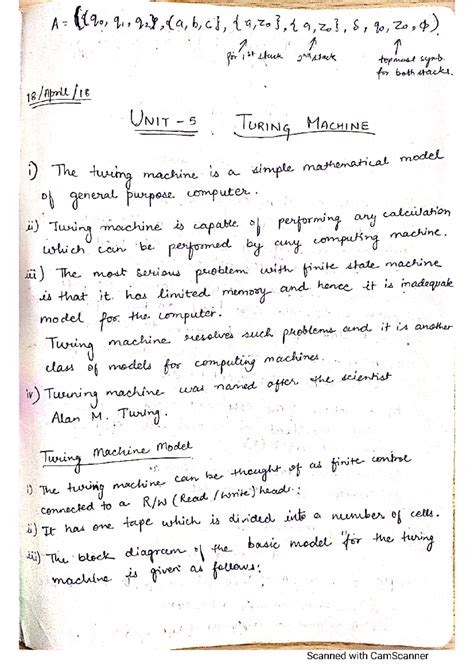 A = ({q₀, q₁, q₂}, {a, b, c}, {a, z₀}, {a, z₀}, δ, q₀, z₀, φ)
for 1st stack 2nd stack topmost symb. for both stacks.
18/April/18
UNIT - 5 TURING MACHINE
i) The turing machine is a simple mathematical model
of general purpose computer.
ii) Turing machine is capable of performing any calculation
which can be performed by any computing machine.
iii) The most serious problem with finite state machine
is that it has limited memory and hence it is inadequate
model for the computer.
Turing machine resolves such problems and it is another
class of models for computing machines.
iv) Turning machine was named after the scientist
Alan M. Turing.
Turing Machine Model
i) The turing machine can be thought of as finite control
connected to a R/W (Read / Write) head.
ii) It has one tape which is divided into a number of cells.
iii) The block diagram of the basic model for the turing
machine is given as follows:
Scanned with CamScanner